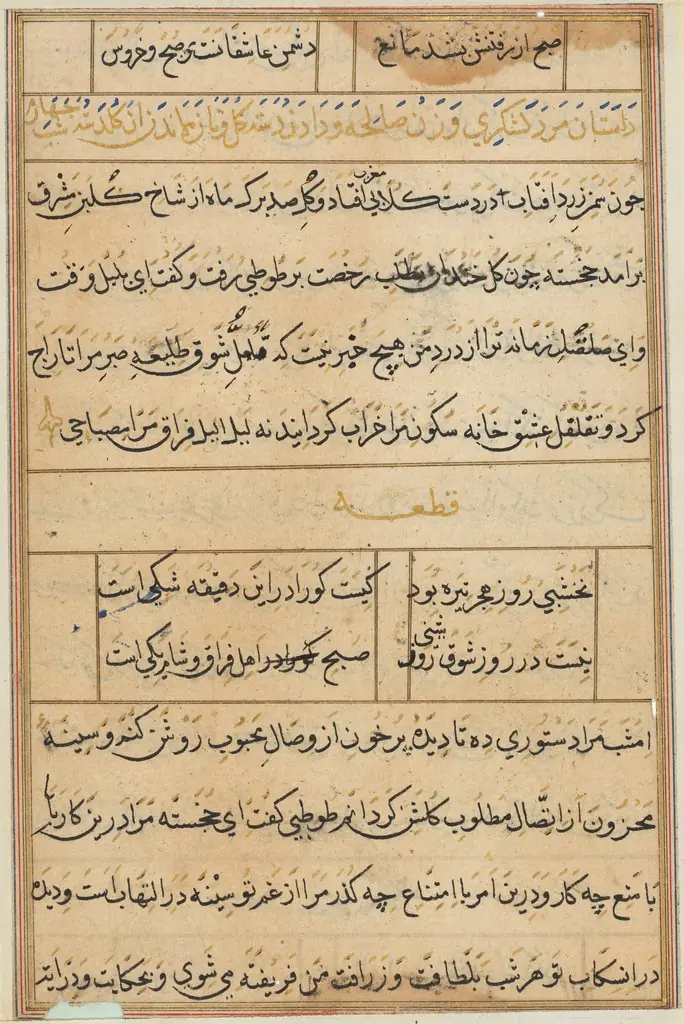 صبح از رفتنش بشد مانع دشمن عاشقانست صبح و خروس
داستان مرد لشکری و زن صالحه و دادن دسته گل و باز نماندن آن گلدسته شب چهارم
چون سمن زرد آفتاب در دست کلابی مغرب افتاد و گل صد برک ماه از شاخ گلبن مشرق
برآمد خجسته چون کل خندان بطلب رخصت بر طوطی رفت و کفت ای بلبل وقت
و ای صلصل زمانه ترا از درد من هیچ خبر نیست که شوق طلیعه صبر مرا تاراج
کرد و تقلقل عشق خانه سکون مرا خراب کردانید نه لیلا لیل فراق مرا مصباحی
قطعه
نخشبی روز هجر تیره بود کیست کو را در این دقیقه شکی است
نیست در روز شوق روشنی صبح اهل فراق و شام یکی است
امشب مرا دستوری ده تا دیده پر خون از وصال محبوب روشن کنم و سینه
محزون از اتصال مطلوب کلشن کردانم طوطی کفت ای خجسته مرا درین کار با
با منع چه کار و درین امر با امتناع چه کذر مرا از غم تو سینه در التهاب است و دیده
در انسکاب تو هر شب بلطافت و زرافت من فریفته می شوی و بحکایت و درایت